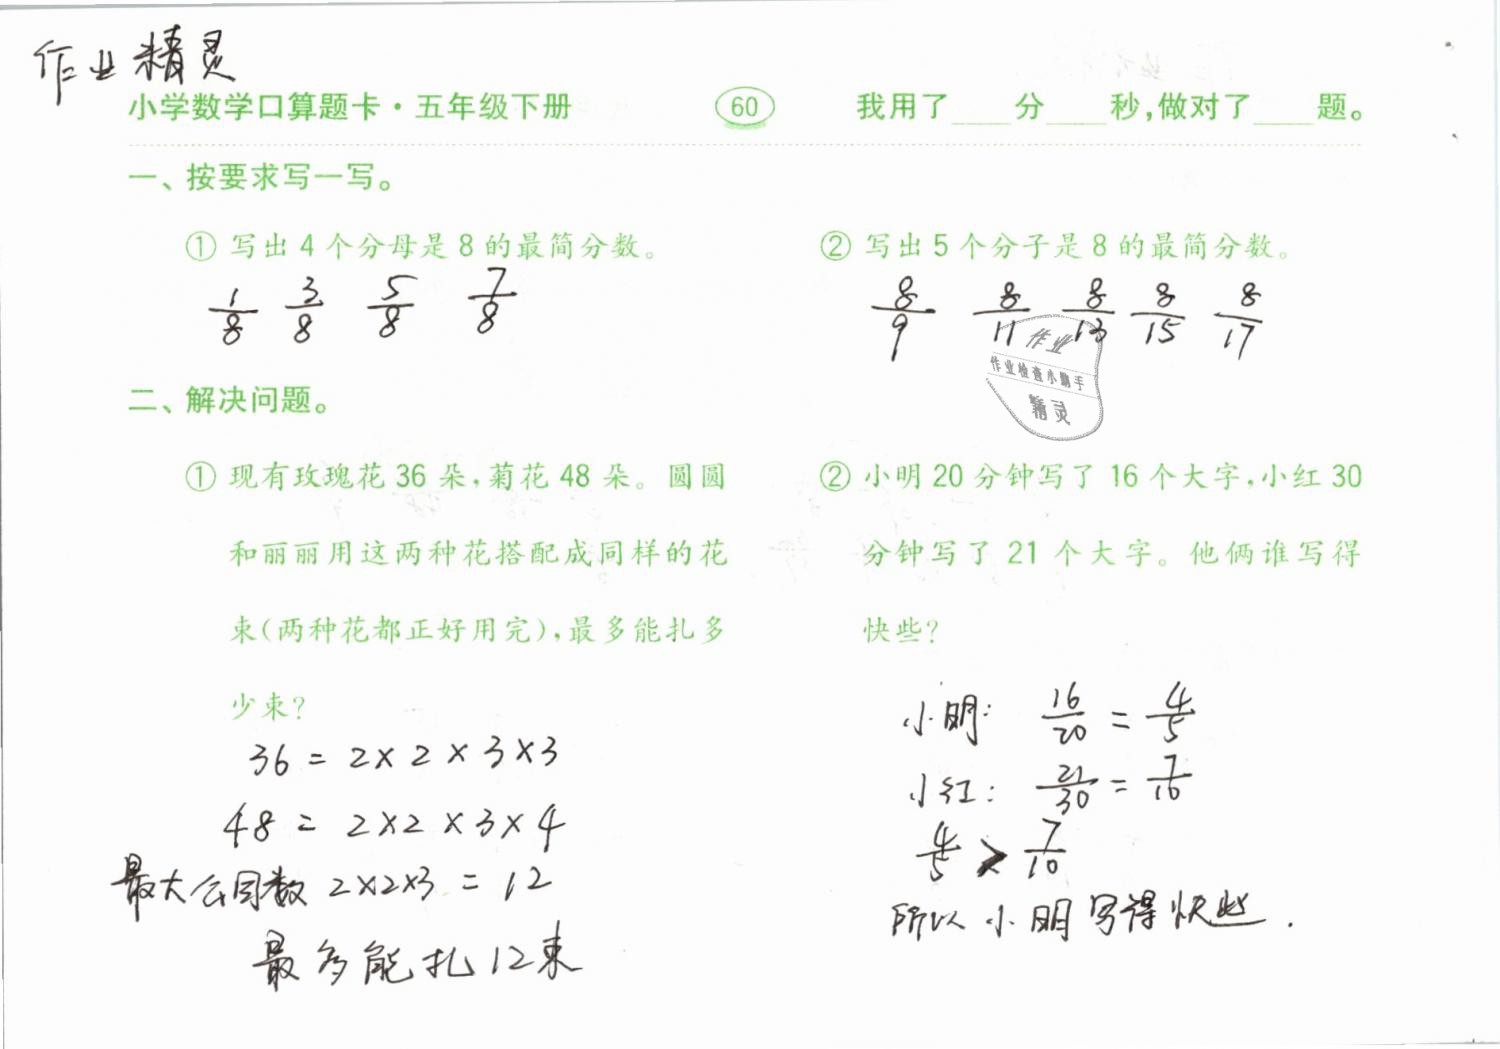 作业精灵
小学数学口算题卡·五年级下册 60 我用了____分____秒,做对了____题。
一、按要求写一写。
① 写出 4 个分母是 8 的最简分数。
1/8 3/8 5/8 7/8
② 写出 5 个分子是 8 的最简分数。
8/9 8/11 8/13 8/15 8/17
作业
作业检查小助手
精灵
二、解决问题。
① 现有玫瑰花 36 朵,菊花 48 朵。圆圆
和丽丽用这两种花搭配成同样的花
束(两种花都正好用完),最多能扎多
少束?
36 = 2×2×3×3
48 = 2×2×3×4
最大公因数 2×2×3 = 12
最多能扎12束
② 小明 20 分钟写了 16 个大字,小红 30
分钟写了 21 个大字。他俩谁写得
快些?
小明: 16/20 = 4/5
小红: 21/30 = 7/10
4/5 > 7/10
所以小明写得快些.